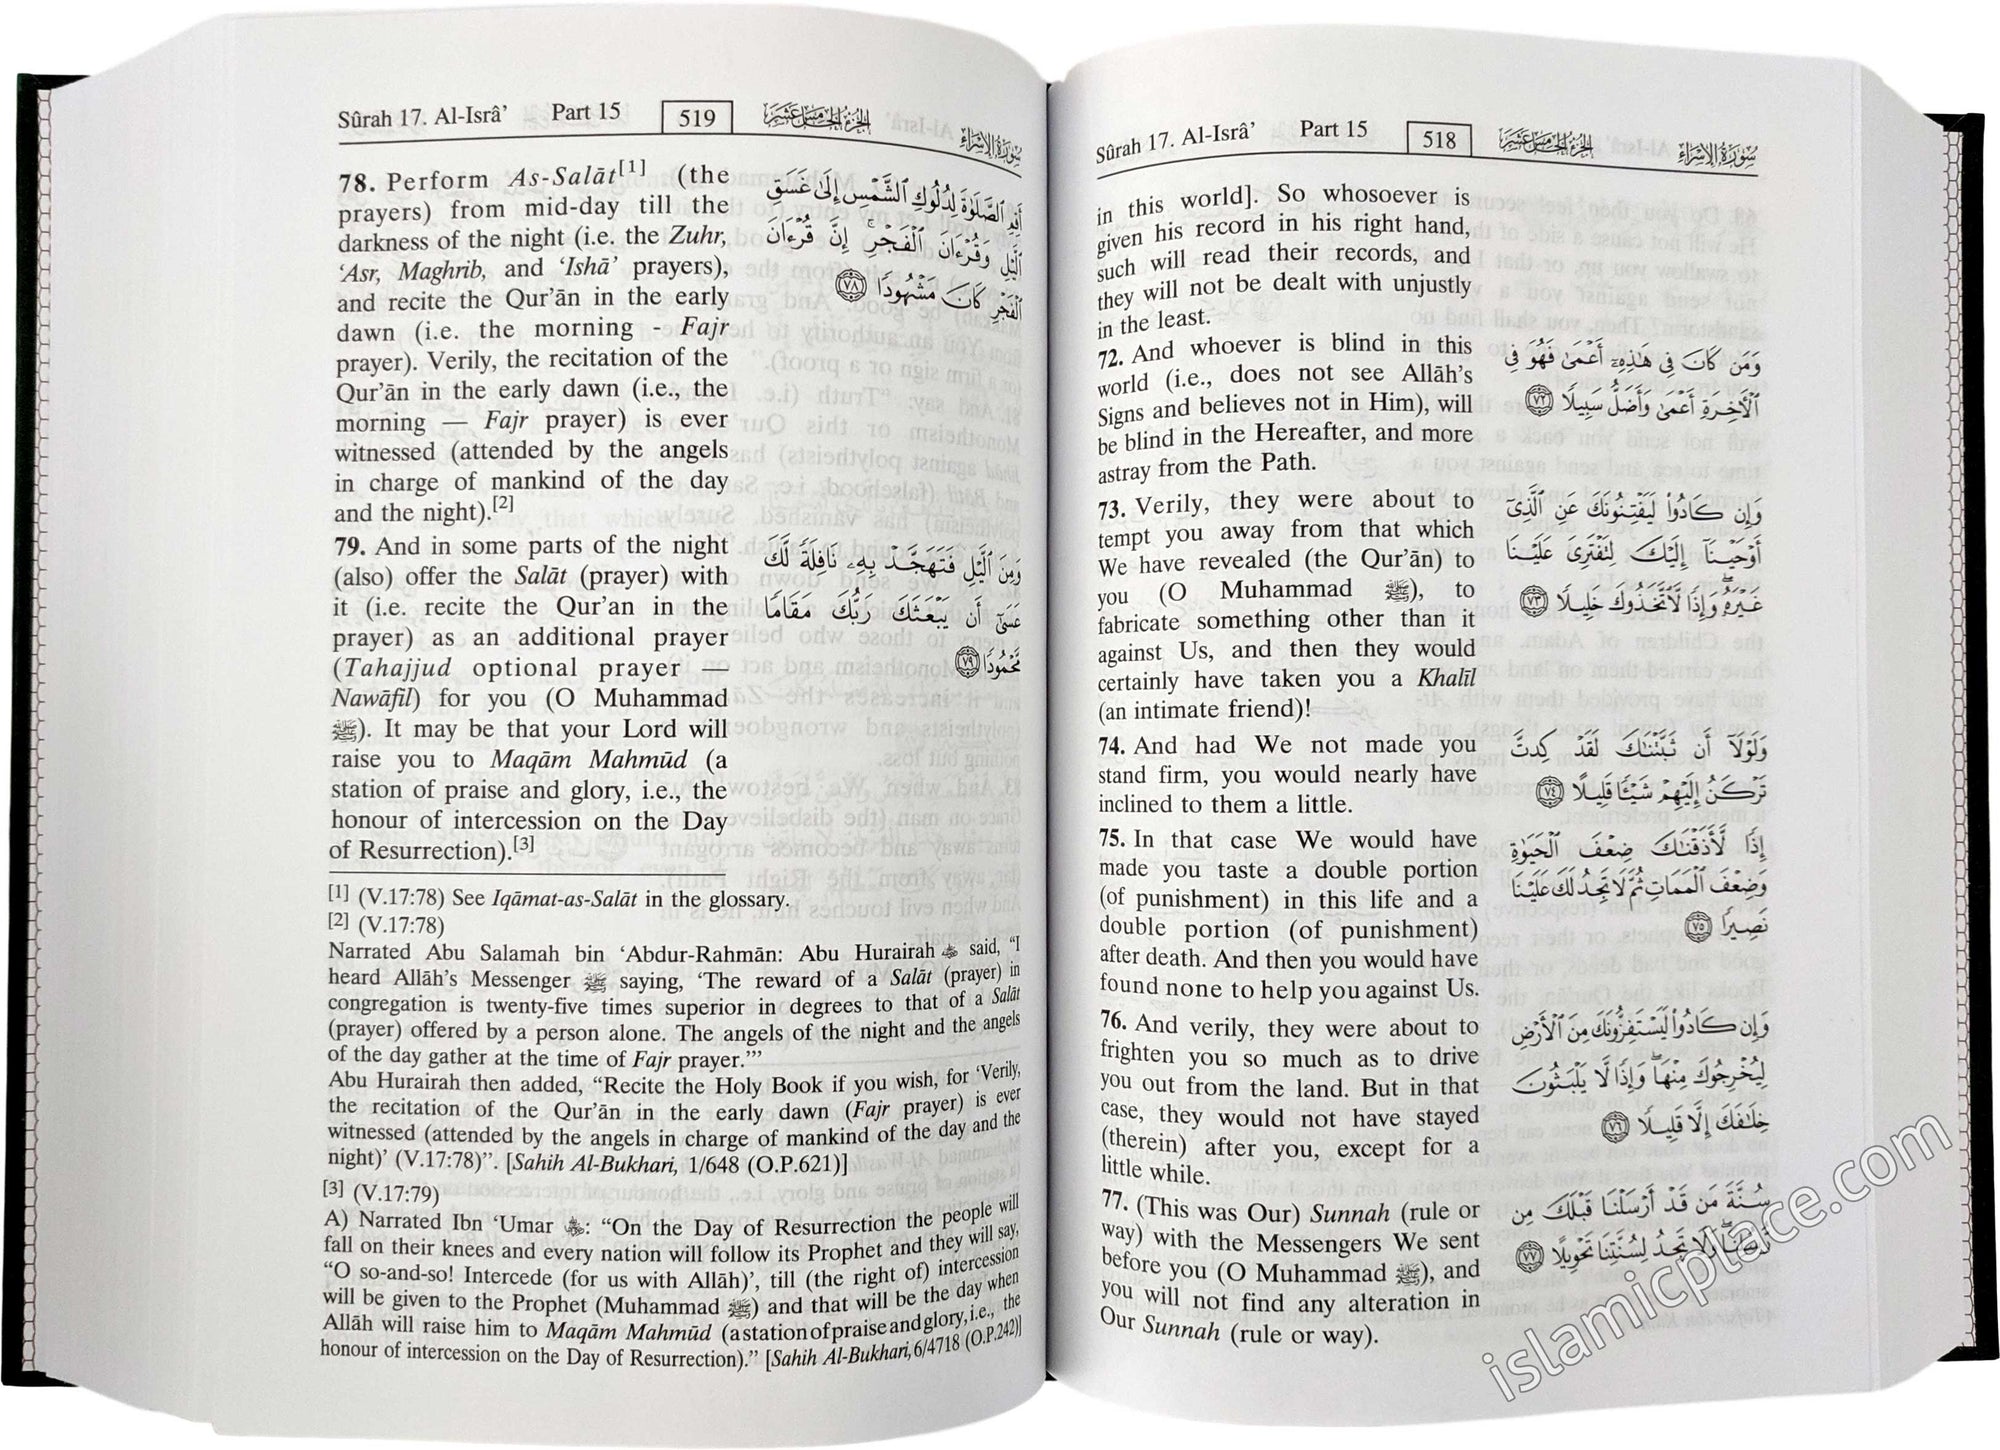 Sûrah 17. Al-Isrâ’ Part 15 518 الجزء الخامس عشر سورة الإسراء
in this world]. So whosoever is
given his record in his right hand,
such will read their records, and
they will not be dealt with unjustly
in the least.
72. And whoever is blind in this
world (i.e., does not see Allāh’s
Signs and believes not in Him), will
be blind in the Hereafter, and more
astray from the Path.
73. Verily, they were about to
tempt you away from that which
We have revealed (the Qur’ān) to
you (O Muhammad ﷺ), to
fabricate something other than it
against Us, and then they would
certainly have taken you a Khalīl
(an intimate friend)!
74. And had We not made you
stand firm, you would nearly have
inclined to them a little.
75. In that case We would have
made you taste a double portion
(of punishment) in this life and a
double portion (of punishment)
after death. And then you would have
found none to help you against Us.
76. And verily, they were about to
frighten you so much as to drive
you out from the land. But in that
case, they would not have stayed
(therein) after you, except for a
little while.
77. (This was Our) Sunnah (rule or
way) with the Messengers We sent
before you (O Muhammad ﷺ), and
you will not find any alteration in
Our Sunnah (rule or way).
وَمَن كَانَ فِى هَٰذِهِۦٓ أَعْمَىٰ فَهُوَ فِى
ٱلْأَخِرَةِ أَعْمَىٰ وَأَضَلُّ سَبِيلًا ٧٢
وَإِن كَادُوا۟ لَيَفْتِنُونَكَ عَنِ ٱلَّذِىٓ
أَوْحَيْنَآ إِلَيْكَ لِتَفْتَرِىَ عَلَيْنَا
غَيْرَهُۥ وَإِذًا لَّٱتَّخَذُوكَ خَلِيلًا ٧٣
وَلَوْلَآ أَن ثَبَّتْنَٰكَ لَقَدْ كِدتَّ
تَرْكَنُ إِلَيْهِمْ شَيْـًٔا قَلِيلًا ٧٤
إِذًا لَّأَذَقْنَٰكَ ضِعْفَ ٱلْحَيَوٰةِ
وَضِعْفَ ٱلْمَمَاتِ ثُمَّ لَا تَجِدُ لَكَ عَلَيْنَا
نَصِيرًا ٧٥
وَإِن كَادُوا۟ لَيَسْتَفِزُّونَكَ مِنَ ٱلْأَرْضِ
لِيُخْرِجُوكَ مِنْهَا وَإِذًا لَّا يَلْبَثُونَ
خِلَٰفَكَ إِلَّا قَلِيلًا ٧٦
سُنَّةَ مَن قَدْ أَرْسَلْنَا قَبْلَكَ مِن
رُّسُلِنَا وَلَا تَجِدُ لِسُنَّتِنَا تَحْوِيلًا ٧٧
Sûrah 17. Al-Isrâ’ Part 15 519 الجزء الخامس عشر سورة الإسراء
78. Perform As-Salāt[1] (the
prayers) from mid-day till the
darkness of the night (i.e. the Zuhr,
‘Asr, Maghrib, and ‘Ishā’ prayers),
and recite the Qur’ān in the early
dawn (i.e. the morning - Fajr
prayer). Verily, the recitation of the
Qur’ān in the early dawn (i.e., the
morning — Fajr prayer) is ever
witnessed (attended by the angels
in charge of mankind of the day
and the night).[2]
79. And in some parts of the night
(also) offer the Salāt (prayer) with
it (i.e. recite the Qur’an in the
prayer) as an additional prayer
(Tahajjud optional prayer —
Nawāfil) for you (O Muhammad
ﷺ). It may be that your Lord will
raise you to Maqām Mahmūd (a
station of praise and glory, i.e., the
honour of intercession on the Day
of Resurrection).[3]
أَقِمِ ٱلصَّلَوٰةَ لِدُلُوكِ ٱلشَّمْسِ إِلَىٰ غَسَقِ
ٱلَّيْلِ وَقُرْءَانَ ٱلْفَجْرِ ۖ إِنَّ قُرْءَانَ
ٱلْفَجْرِ كَانَ مَشْهُودًا ٧٨
وَمِنَ ٱلَّيْلِ فَتَهَجَّدْ بِهِۦ نَافِلَةً لَّكَ
عَسَىٰٓ أَن يَبْعَثَكَ رَبُّكَ مَقَامًا
مَّحْمُودًا ٧٩
[1] (V.17:78) See Iqāmat-as-Salāt in the glossary.
[2] (V.17:78)
Narrated Abu Salamah bin ‘Abdur-Rahmān: Abu Hurairah said, “I
heard Allāh’s Messenger ﷺ saying, ‘The reward of a Salāt (prayer) in
congregation is twenty-five times superior in degrees to that of a Salāt
(prayer) offered by a person alone. The angels of the night and the angels
of the day gather at the time of Fajr prayer.’”
Abu Hurairah then added, “Recite the Holy Book if you wish, for ‘Verily,
the recitation of the Qur’ān in the early dawn (Fajr prayer) is ever
witnessed (attended by the angels in charge of mankind of the day and the
night)’ (V.17:78)”. [Sahih Al-Bukhari, 1/648 (O.P.621)]
[3] (V.17:79)
A) Narrated Ibn ‘Umar : “On the Day of Resurrection the people will
fall on their knees and every nation will follow its Prophet and they will say,
“O so-and-so! Intercede (for us with Allāh)’, till (the right of) intercession
will be given to the Prophet (Muhammad ﷺ) and that will be the day when
Allāh will raise him to Maqām Mahmūd (a station of praise and glory, i.e., the
honour of intercession on the Day of Resurrection).” [Sahih Al-Bukhari, 6/4718 (O.P.242)]
islamicplace.com